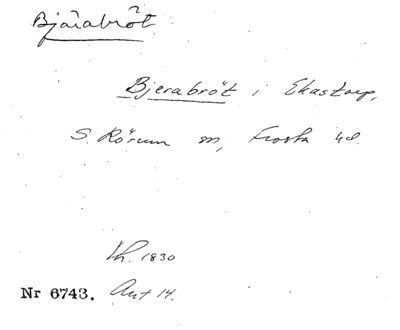 Bjärabröt
Bjerabröt i Ekastorp,
S. Rörum sn, Frosta hd.
Lh. 1830
Nr 6743. Ant 14.